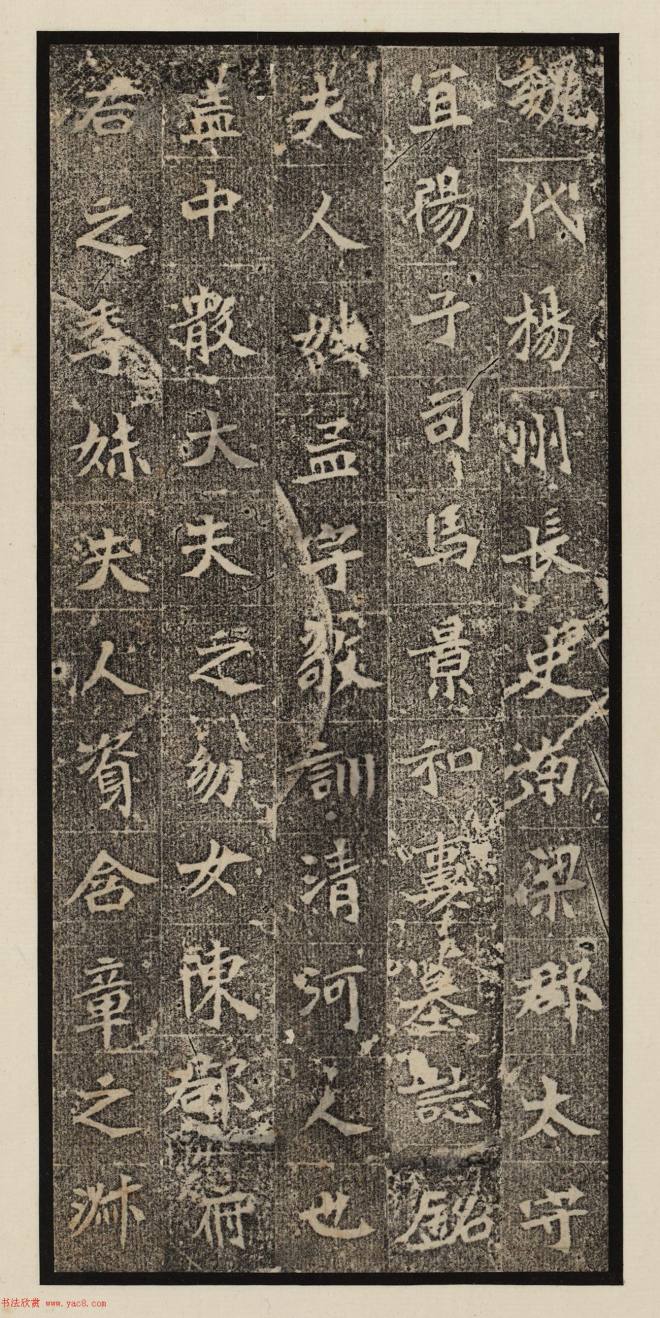 魏代楊州長史南梁郡太守
宜陽子司馬景和妻墓誌銘
夫人姓孟字敬訓清河人也
蓋中散大夫之幼女陳郡府
君之季妹夫人資含章之淑
书法欣赏 www.yac8.com